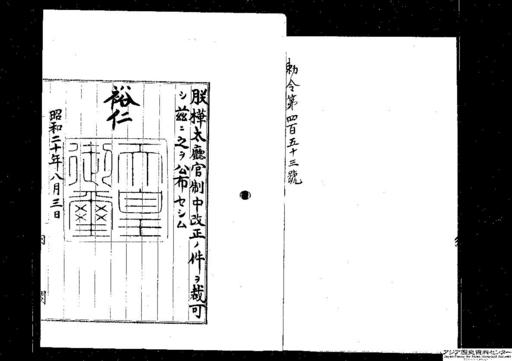 勅令第四百五十三號
朕樺太廳官制中改正ノ件ヲ裁可
シ茲ニ之ヲ公布セシム
裕仁
天皇御璽
昭和二十年八月三日
内閣
アジア歴史資料センター